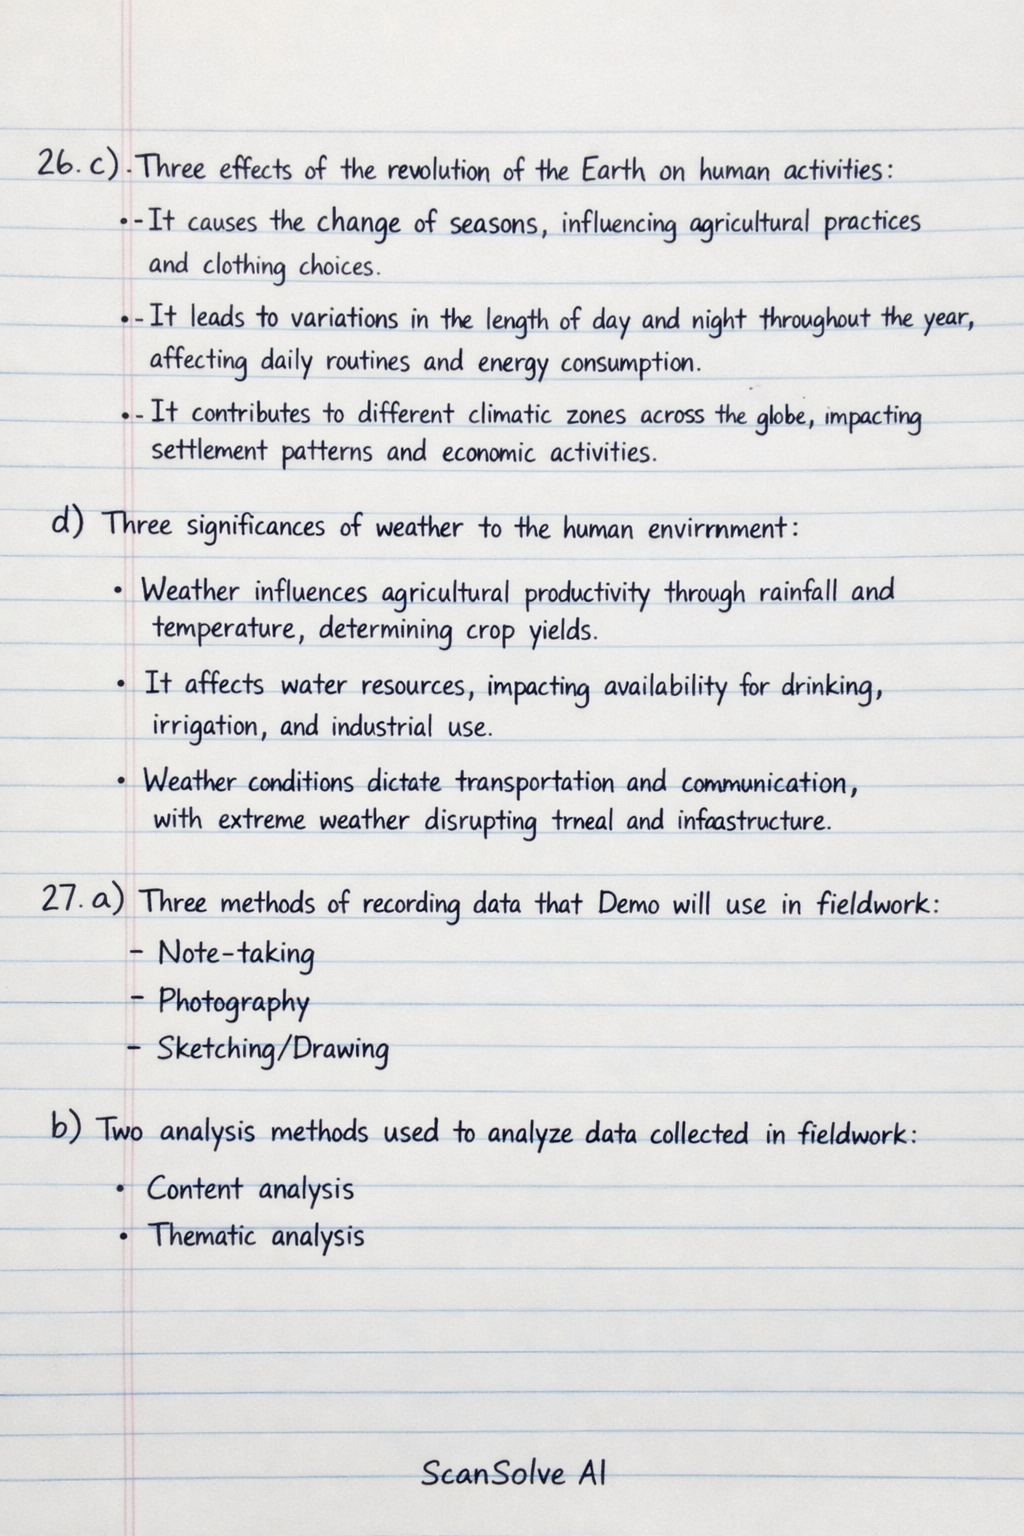 26. c). Three effects of the revolution of the Earth on human activities:
•- It causes the change of seasons, influencing agricultural practices
and clothing choices.
•- It leads to variations in the length of day and night throughout the year,
affecting daily routines and energy consumption.
•- It contributes to different climatic zones across the globe, impacting
settlement patterns and economic activities.
d) Three significances of weather to the human envirrnment:
• Weather influences agricultural productivity through rainfall and
temperature, determining crop yields.
• It affects water resources, impacting availability for drinking,
irrigation, and industrial use.
• Weather conditions dictate transportation and communication,
with extreme weather disrupting trneal and infaastructure.
27. a) Three methods of recording data that Demo will use in fieldwork:
- Note-taking
- Photography
- Sketching/Drawing
b) Two analysis methods used to analyze data collected in fieldwork:
• Content analysis
• Thematic analysis
ScanSolve AI